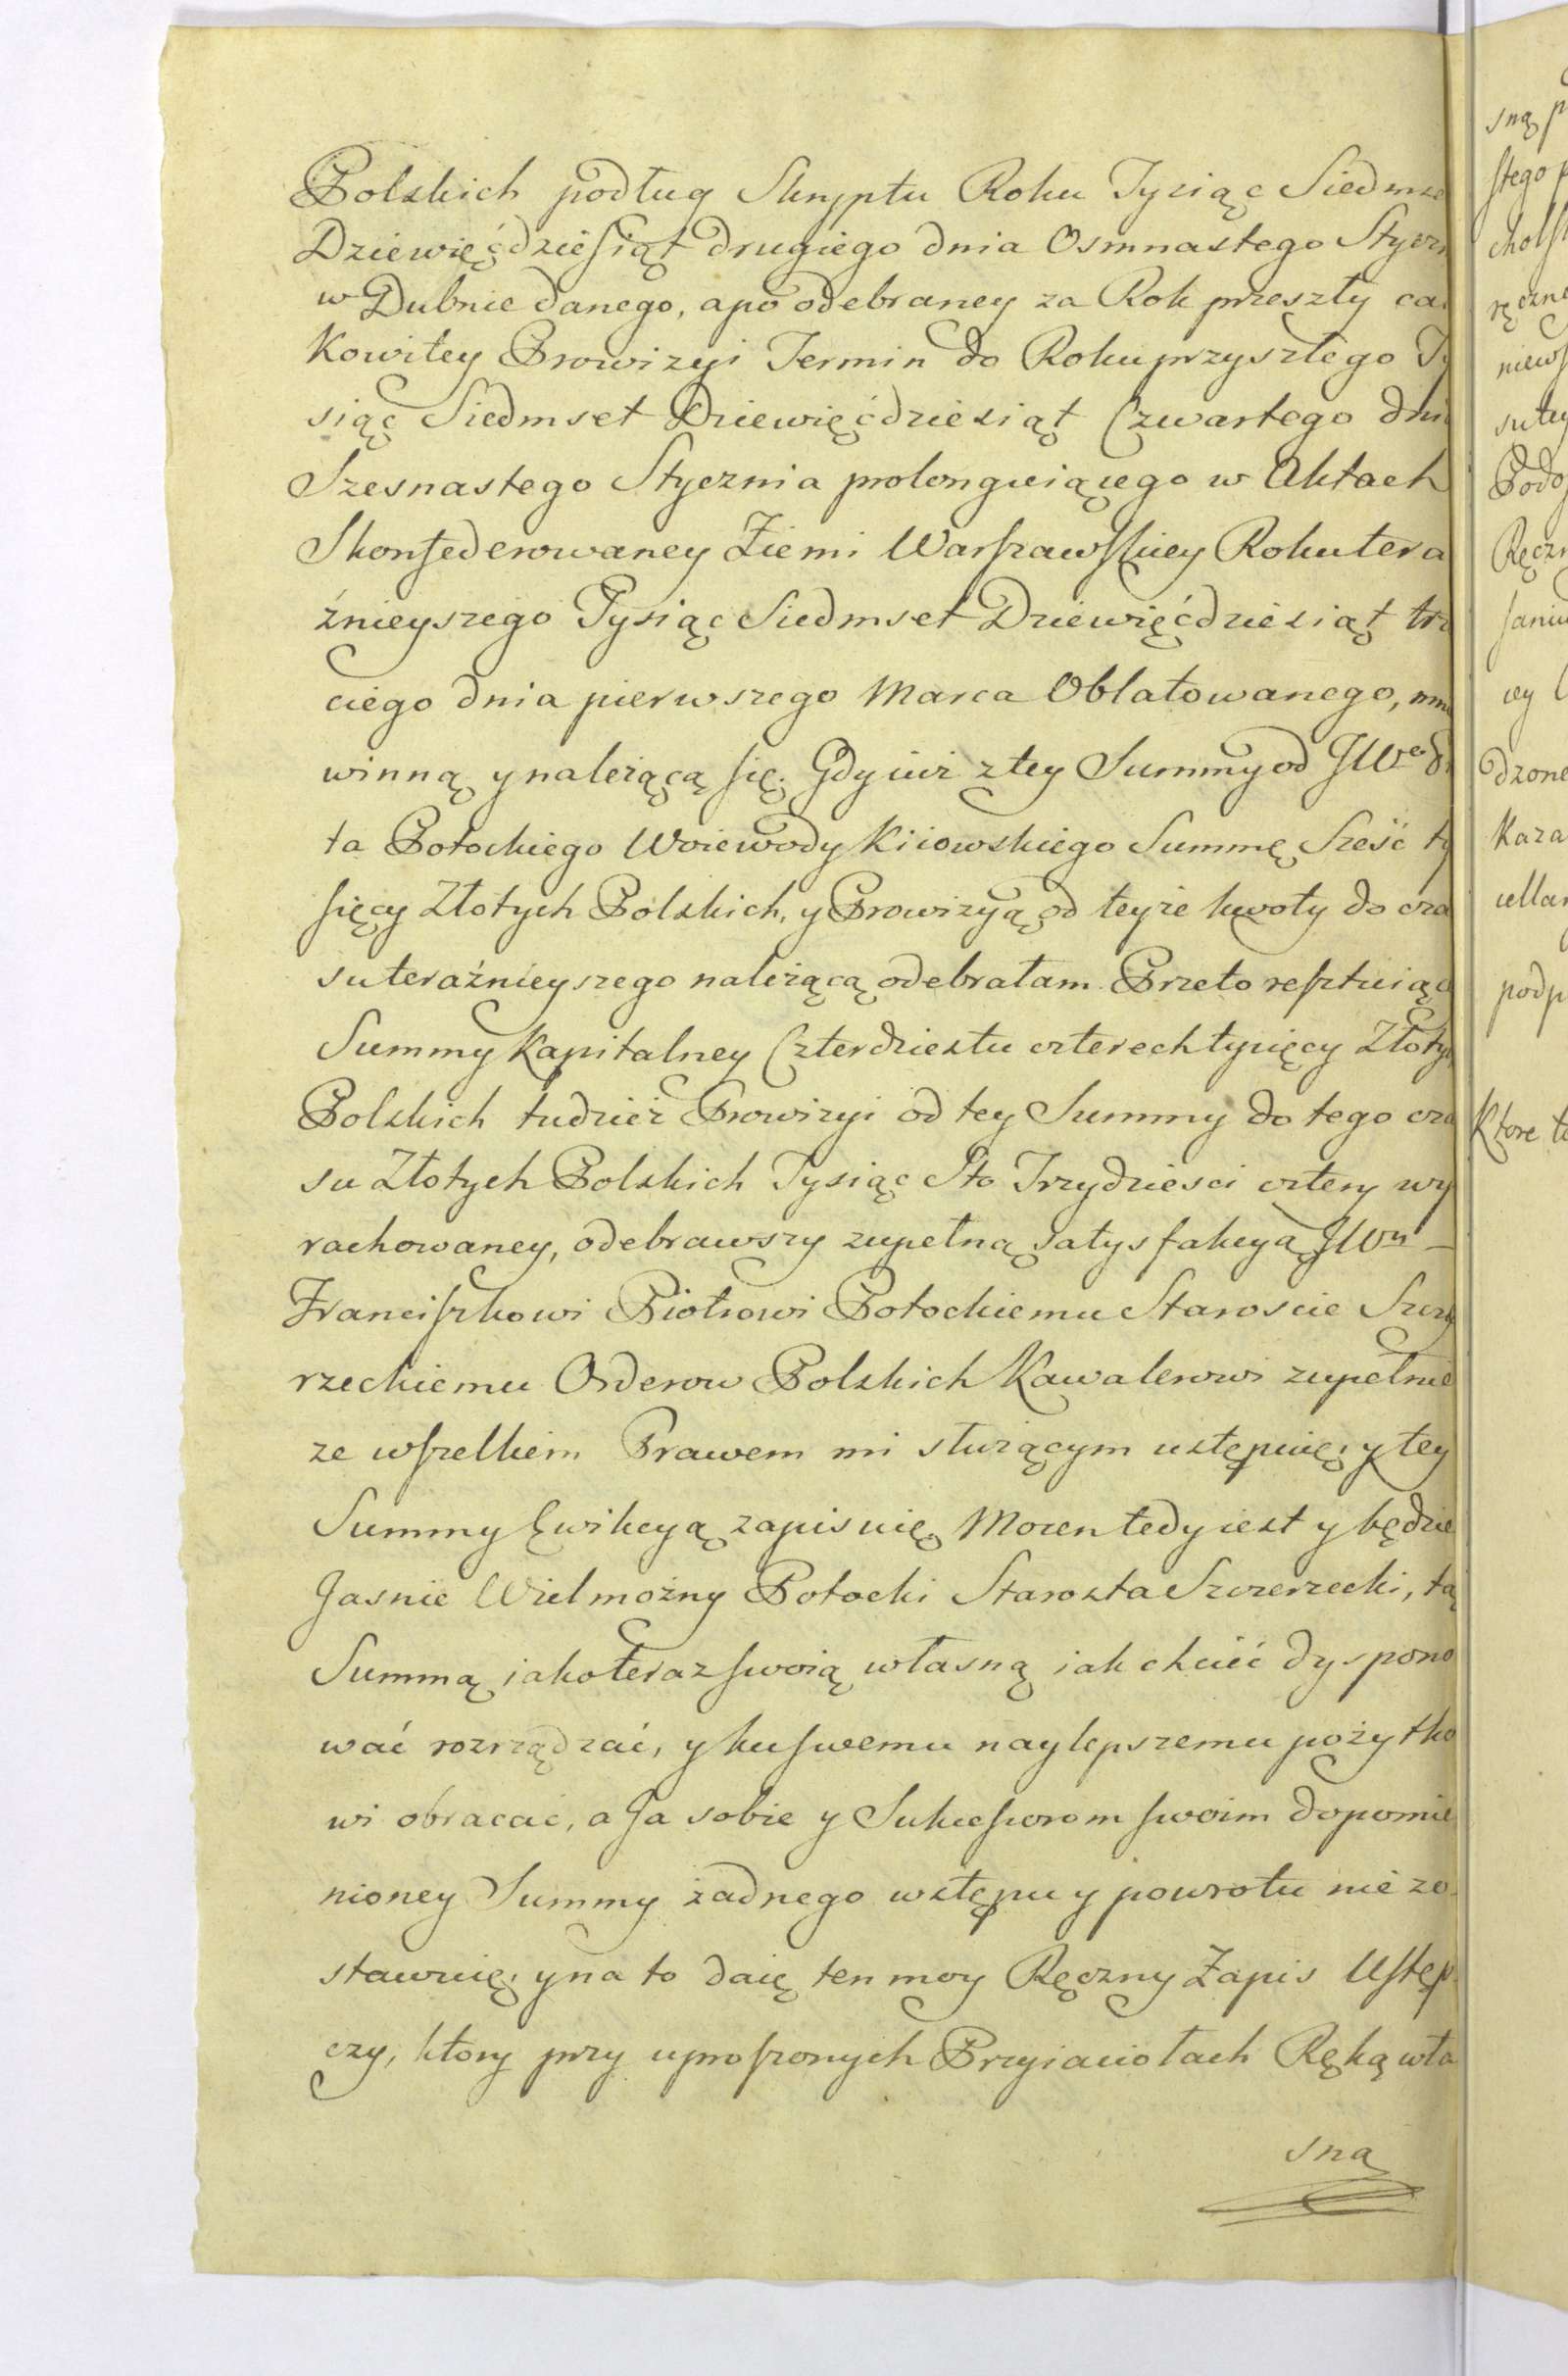 Polskich podług Skryptu Roku Tysiąc Siedmse
Dziewięćdziesiąt drugiego dnia Osmnastego Stycz
w Dubnie danego, a po odebraney za Rok przeszły cał
kowitey Prowizyi Termin do Roku przyszłego Ty
siąc Siedmset Dziewięćdziesiąt Czwartego dnia
Szesnastego Stycznia prolonguiącego w Aktach
Skonfederowaney Ziemi Warszawskiey Roku tera
źnieyszego Tysiąc Siedmset Dziewięćdziesiąt trze
ciego dnia pierwszego Marca Oblatowanego, mnie
winną y należącą się. Gdy iuż z tey Summy od JWo
ta Potockiego Woiewody Kiiowskiego Summę Sześć ty
sięcy Złotych Polskich, y Prowizyą od teyże kwoty do cza
su teraźnieyszego należącą odebrałam. Przeto resztuiąc
Summy Kapitalney Czterdziestu czterech tysięcy Złoty
Polskich tudzież Prowizyi od tey Summy do tego cza
su Złotych Polskich Tysiąc Sto Trzydziesci cztery wy
rachowaney, odebrawszy zupełną satysfakcyą JWu
Franciszkowi Piotrowi Potockiemu Staroscie Szczy
rzeckiemu Orderow Polskich Kawalerowi zupełnie
ze wszelkiem Prawem mi służącym ustępuię, y tey
Summy Ewikcyą zapisuię. Mocen tedy iest y będzie
Jasnie Wielmożny Potocki Starosta Szczerzecki, tą
Summą iako teraz swoią własną iak chcieć dyspono
wać rozrządzać, y ku swemu naylepszemu pożytko
wi obracać, a Ja sobie y Sukcessorom swoim do pomie
nioney Summy żadnego wstępu y powrotu nie zo
stawuię, y na to daię ten moy Ręczny Zapis Ustęp
czy, ktory przy uproszonych Przyiaciołach Ręką wła
sną
sną
stego
ręczne
Podo
dzone
Kaza
podp
Ktore